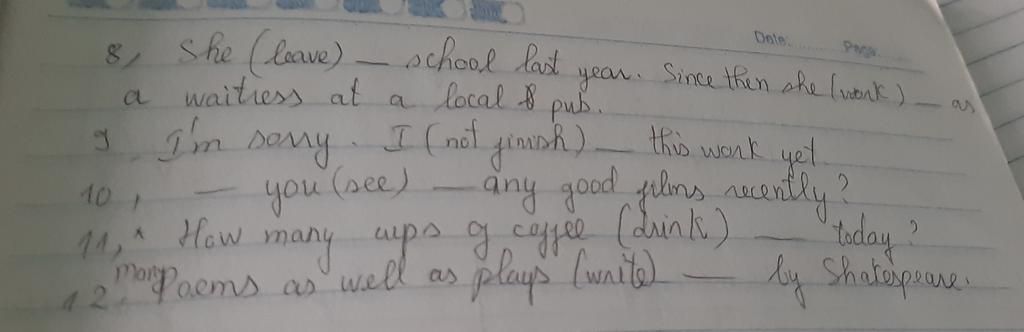 Date: Page:
8, She (leave) — school last year. Since then she (work) — as
a waitress at a local pub.
9, I'm sorry. I (not finish) — this work yet.
10, — you (see) — any good films recently?
11, * How many cups of coffee (drink) — today?
many
12. Poems as well as plays (write) — by Shakespeare.